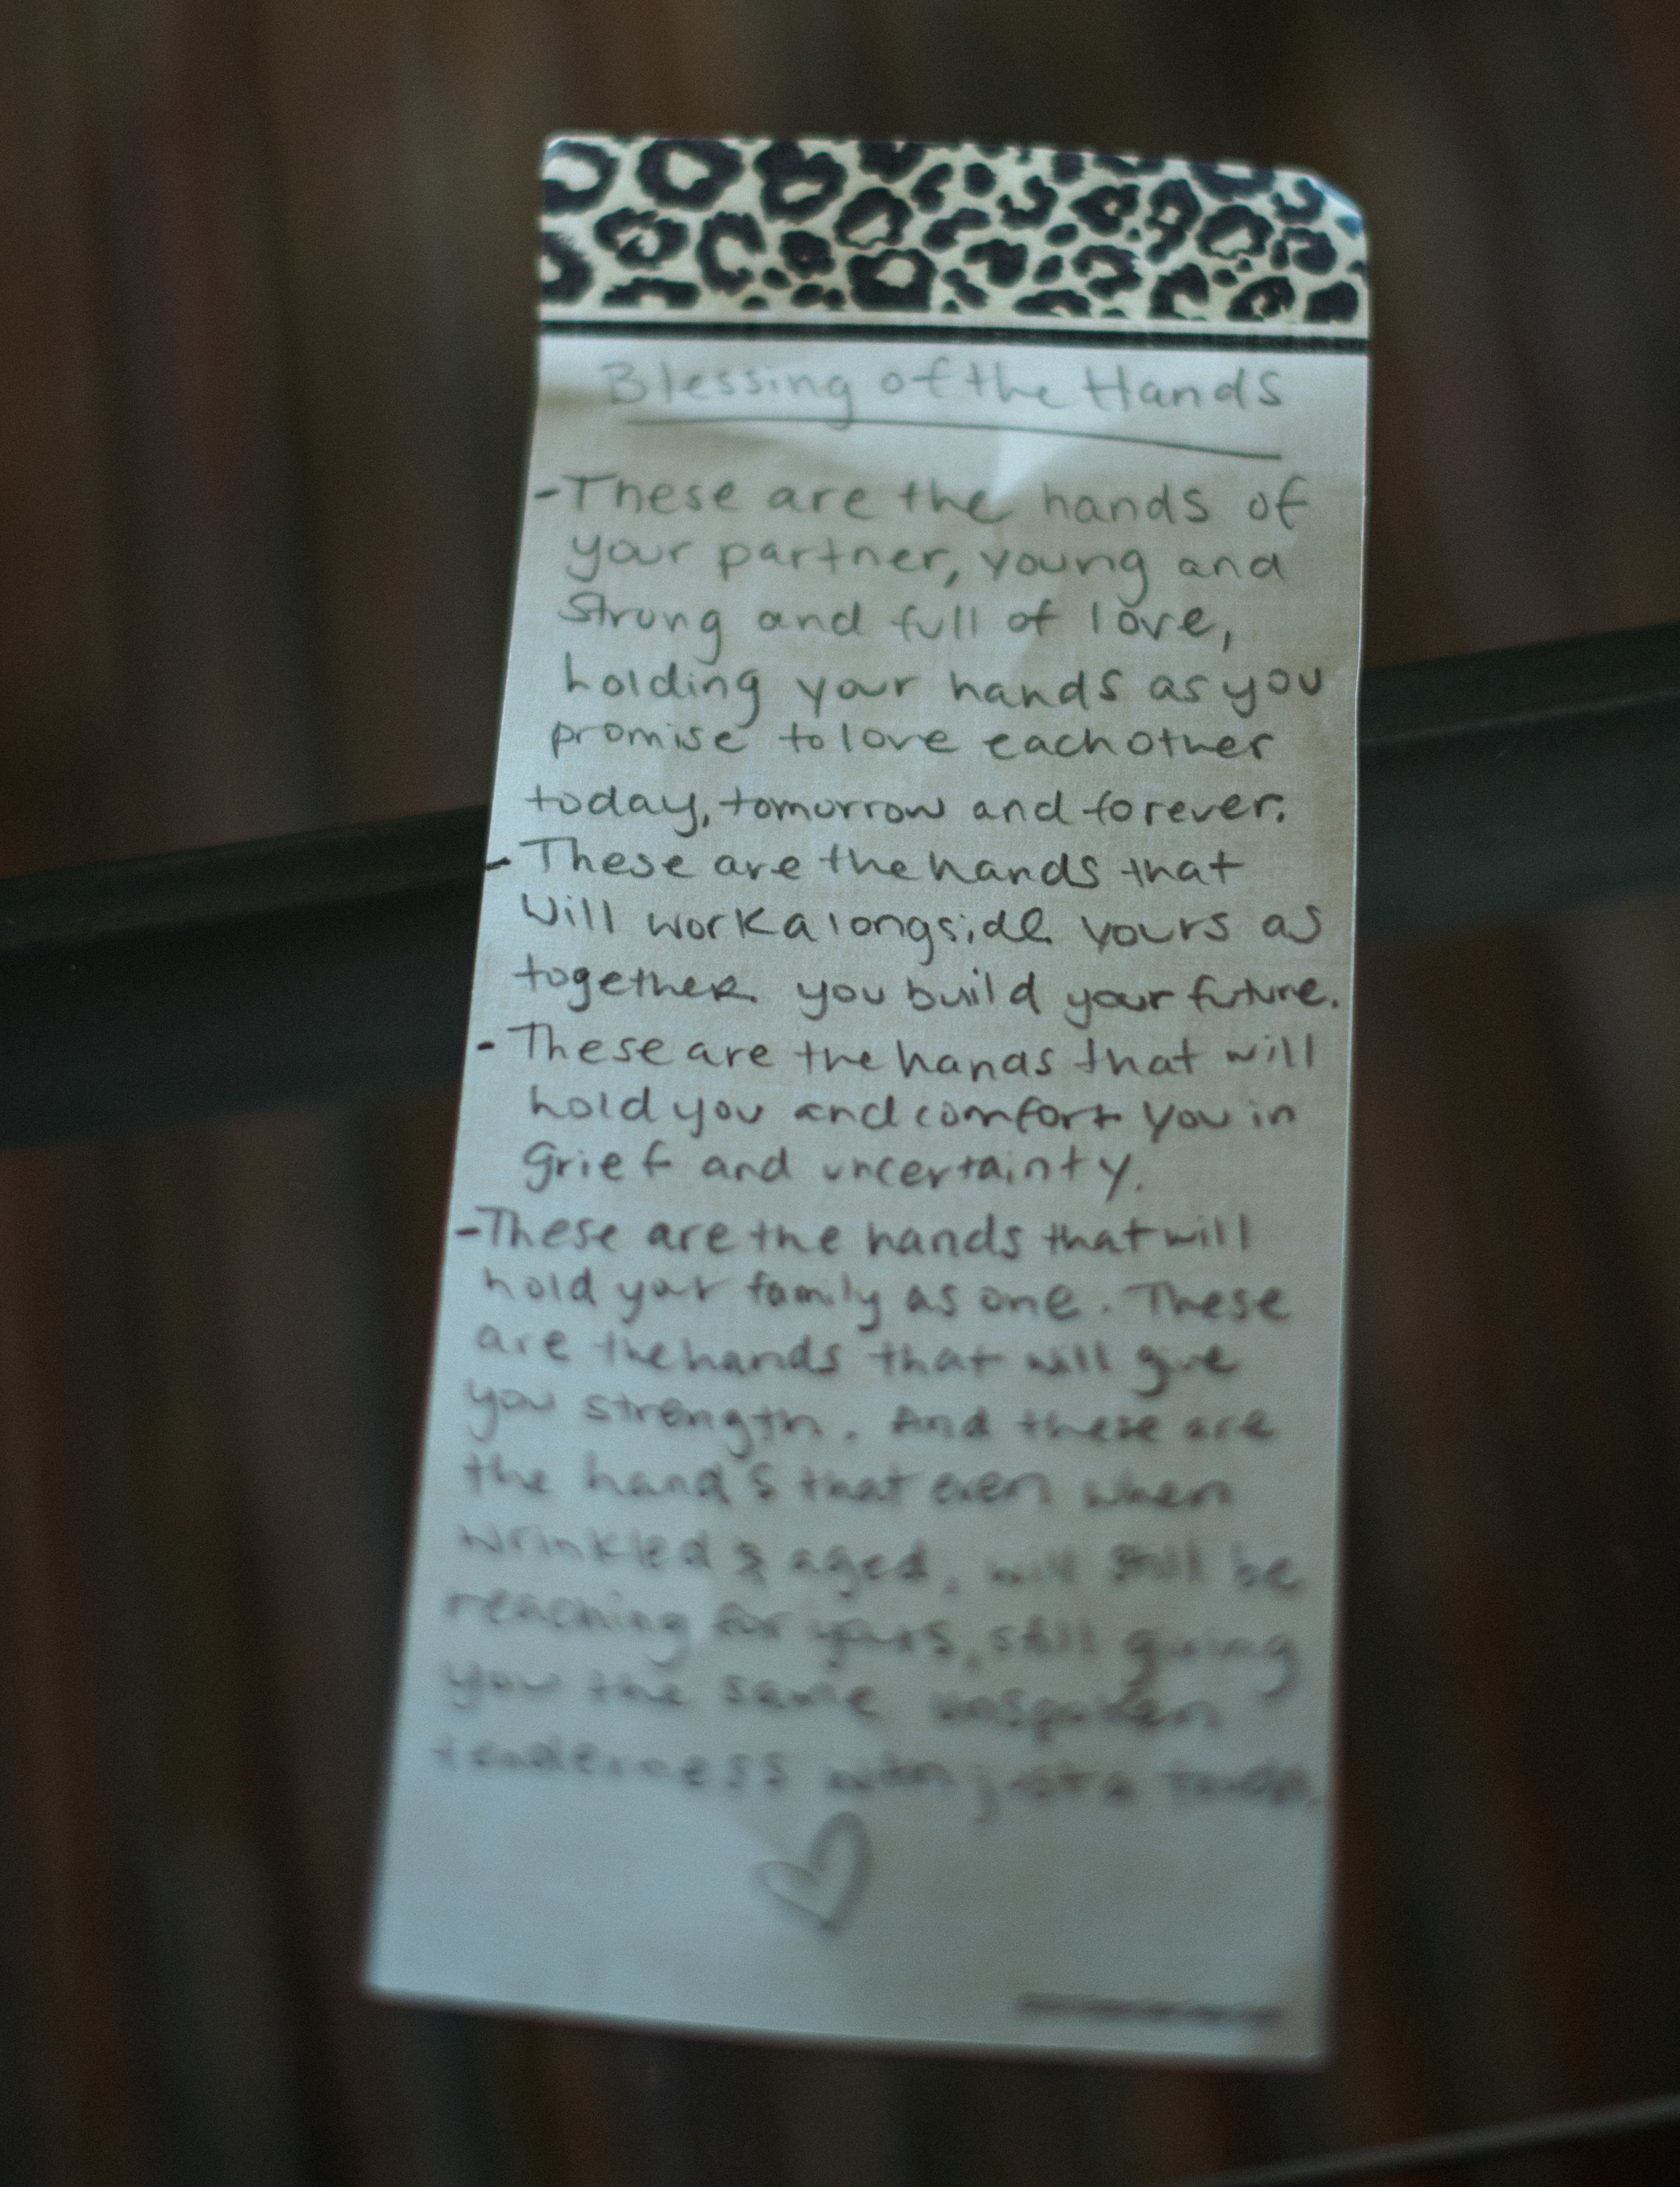 Blessing of the Hands
-These are the hands of
your partner, young and
strong and full of love,
holding your hands as you
promise to love each other
today, tomorrow and forever.
-These are the hands that
will work alongside yours as
together you build your future.
-These are the hands that will
hold you and comfort you in
grief and uncertainty.
-These are the hands that will
hold your family as one. These
are the hands that will give
you strength. And these are
the hands that even when
wrinkled & aged, will still be
reaching for yours, still giving
you the same unspoken
tenderness with just a touch.